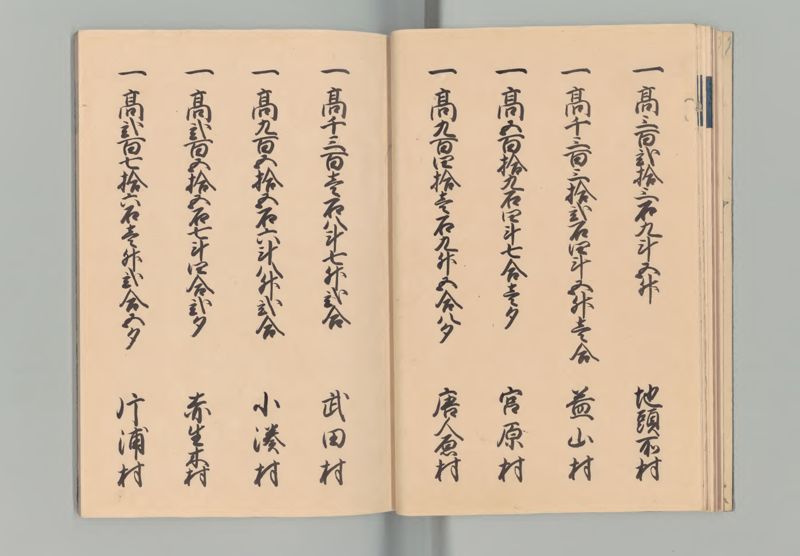 一 高三百弐拾三石九斗五升 地頭所村
一 高千三百三拾弐石四斗五升壱合 益山村
一 高五百拾九石四斗七合壱夕 宮原村
一 高九百四拾壱石九升五合八夕 唐人原村
一 高千三百壱石八斗七升弐合 武田村
一 高九百五拾五石六斗八升弐合 小湊村
一 高弐百五拾五石七斗四合弐夕 赤生木村
一 高弐百七拾六石壱升弐合五夕 片浦村